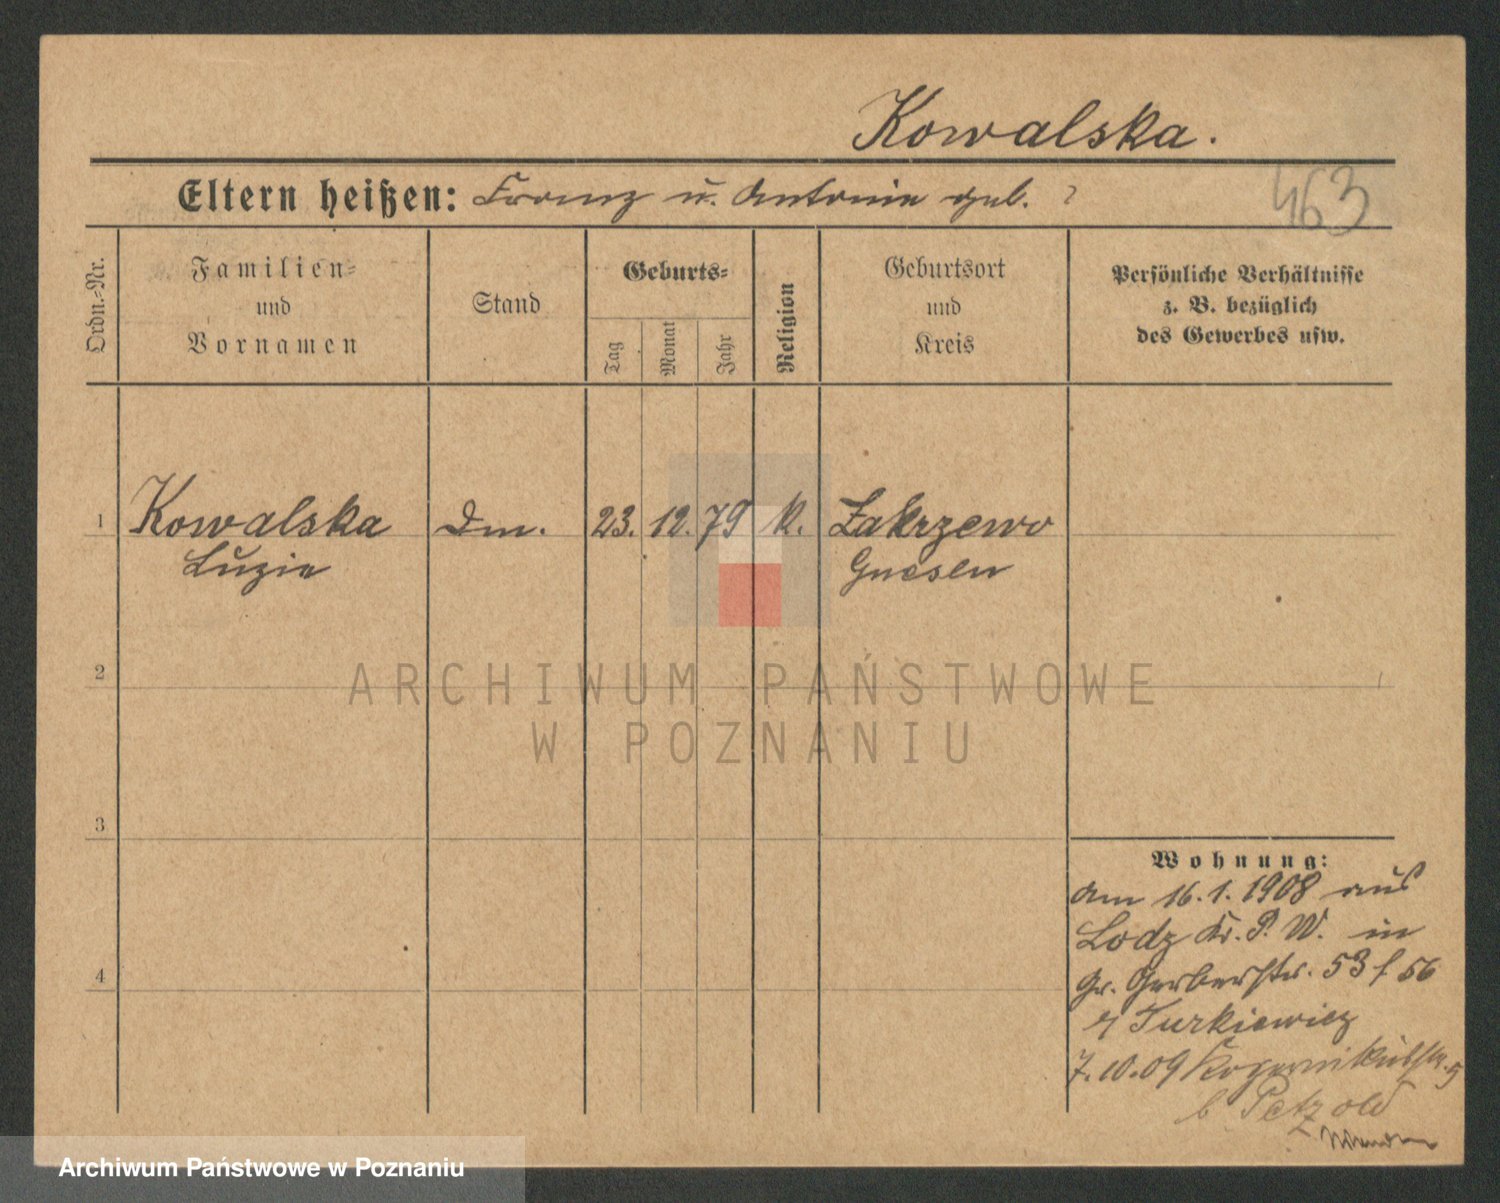 Kowalska.
Eltern heißen: Franz u. Antonie geb. ?
463
Ordn.-Nr.
Familien-
und
Vornamen
Stand
Geburts-
Tag
Monat
Jahr
Religion
Geburtsort
und
Kreis
Persönliche Verhältnisse
z. B. bezüglich
des Gewerbes usw.
1 Kowalska Dm. 23. 12. 79 k. Zakrzewo
Luzie Gnesen
2
ARCHIWUM PAŃSTWOWE
W POZNANIU
3
Wohnung:
am 16.1.1908 aus
Lodz Kr. P. W. in
4
Gr. Gerberstr. 53 f 56
Turkiewicz
7.10.09 Kopernikusstr. 5
b Petzold
Archiwum Państwowe w Poznaniu